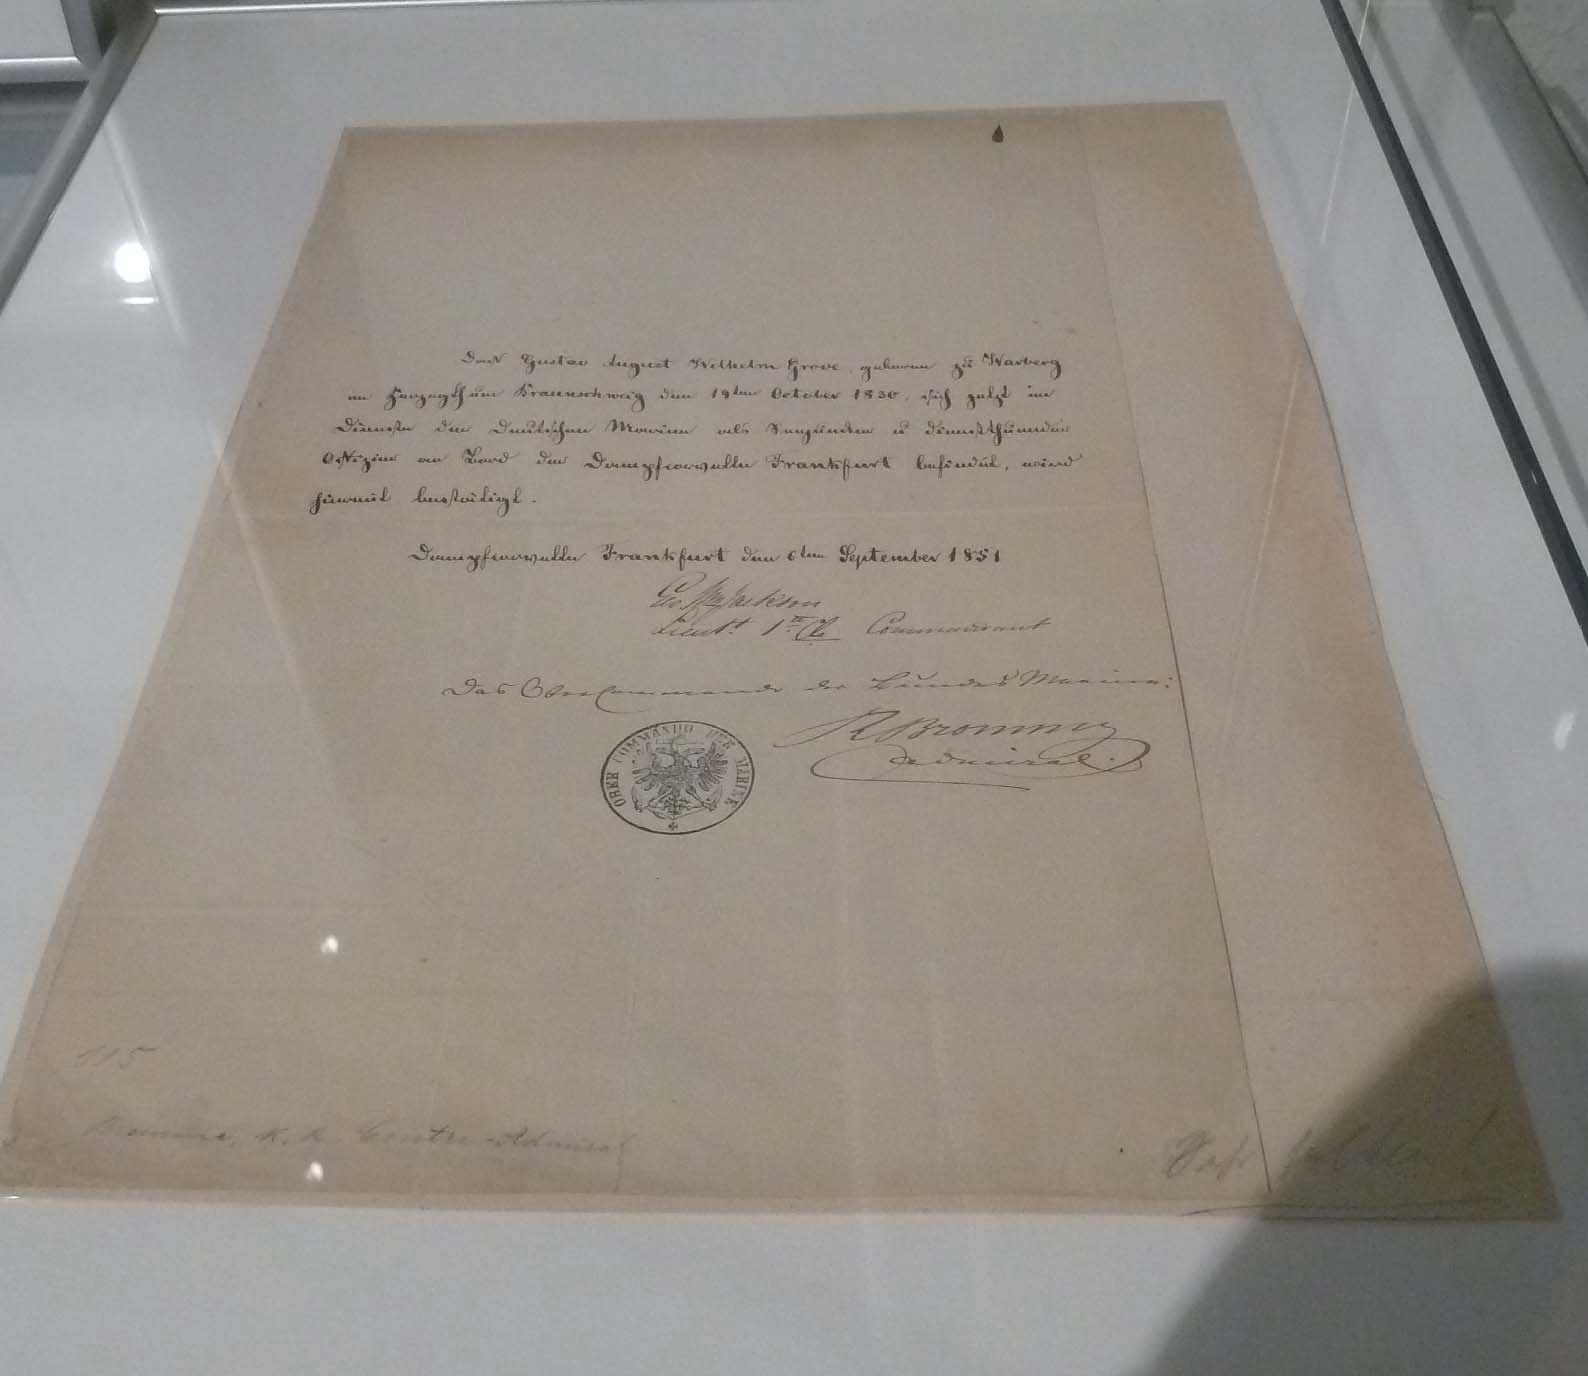 Dass Gustav August Wilhelm Grove, geboren zu Warberg
im Herzogthum Braunschweig den 19ten October 1830, sich jetzt im
Dienste der Deutschen Marine als Secunder u diensthuender
Offizier am Bord der Dampfcorvette Frankfurt befindet, wird
hiermit bestätigt.
Dampfcorvette Frankfurt den 6ten September 1851
Geo. Jackson
Lieutt 1ster Commandant
Das Obercommando der Bundes Marine:
R Brommy
Admiral.
OBER COMMANDO DER MARINE
115
k. k. Contre-Admiral